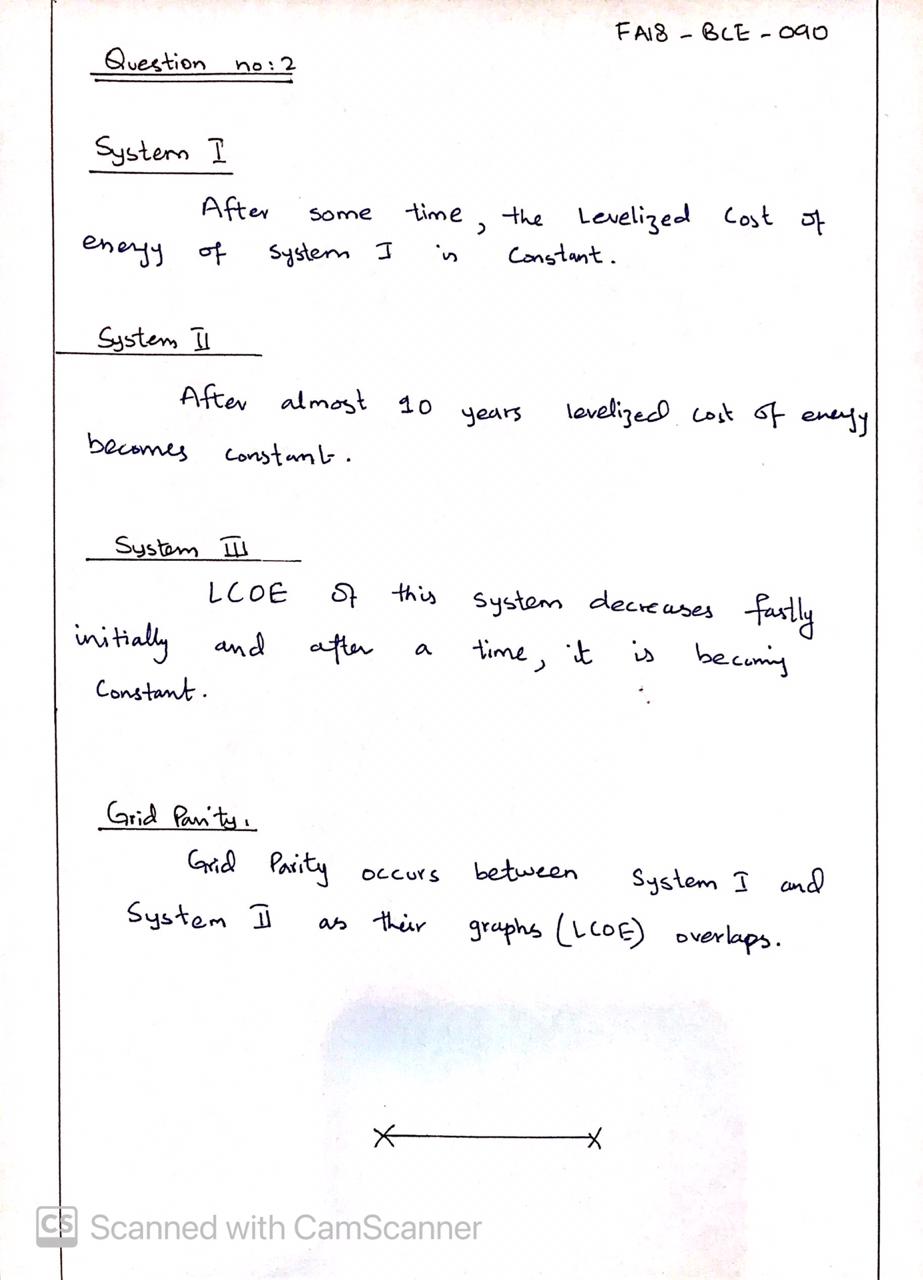 FA18 - BCE - 090
Question no: 2
System I
After some time, the Levelized Cost of
energy of system I is Constant.
System II
After almost 10 years levelized cost of energy
becomes constant.
System III
LCOE of this system decreases fastly
initially and after a time, it is becoming
Constant.
Grid Parity.
Grid Parity occurs between System I and
System II as their graphs (LCOE) overlaps.
CS Scanned with CamScanner